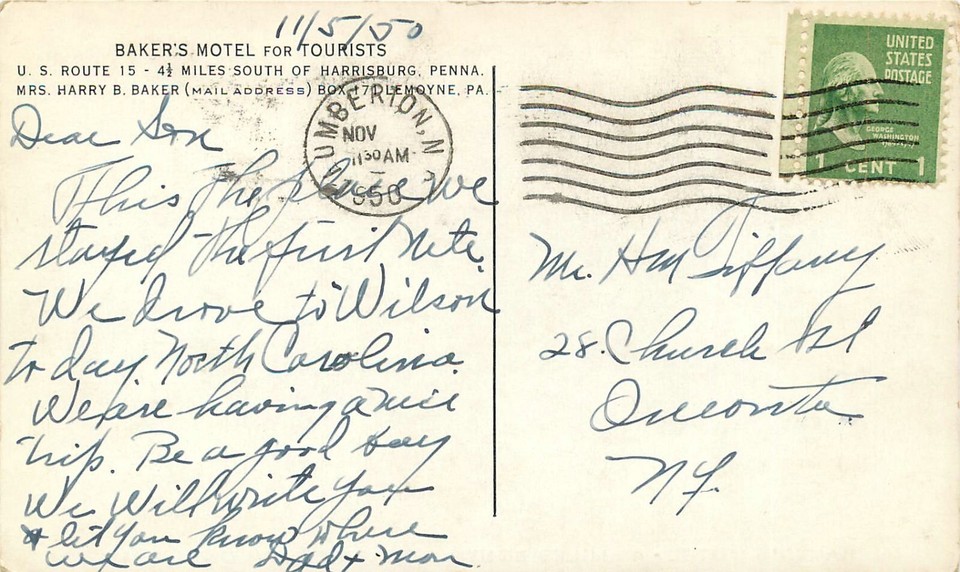 11/5/50
BAKER'S MOTEL FOR TOURISTS
U. S. ROUTE 15 - 4½ MILES SOUTH OF HARRISBURG, PENNA.
MRS. HARRY B. BAKER (MAIL ADDRESS) BOX 17, LEMOYNE, PA.
UMBERTON, N
NOV
11 30 AM
1950
UNITED
STATES
POSTAGE
GEORGE
WASHINGTON
1 CENT 1
Dear Son
This the place we
stayed the first Nite.
We drove to Wilson
to day. North Carolina.
We are having a nice
trip. Be a good boy
We Will write you
& let you know where
we are Dad & Mom
Mr. HM Tiffany
28. Church St
Oneonta
NY.